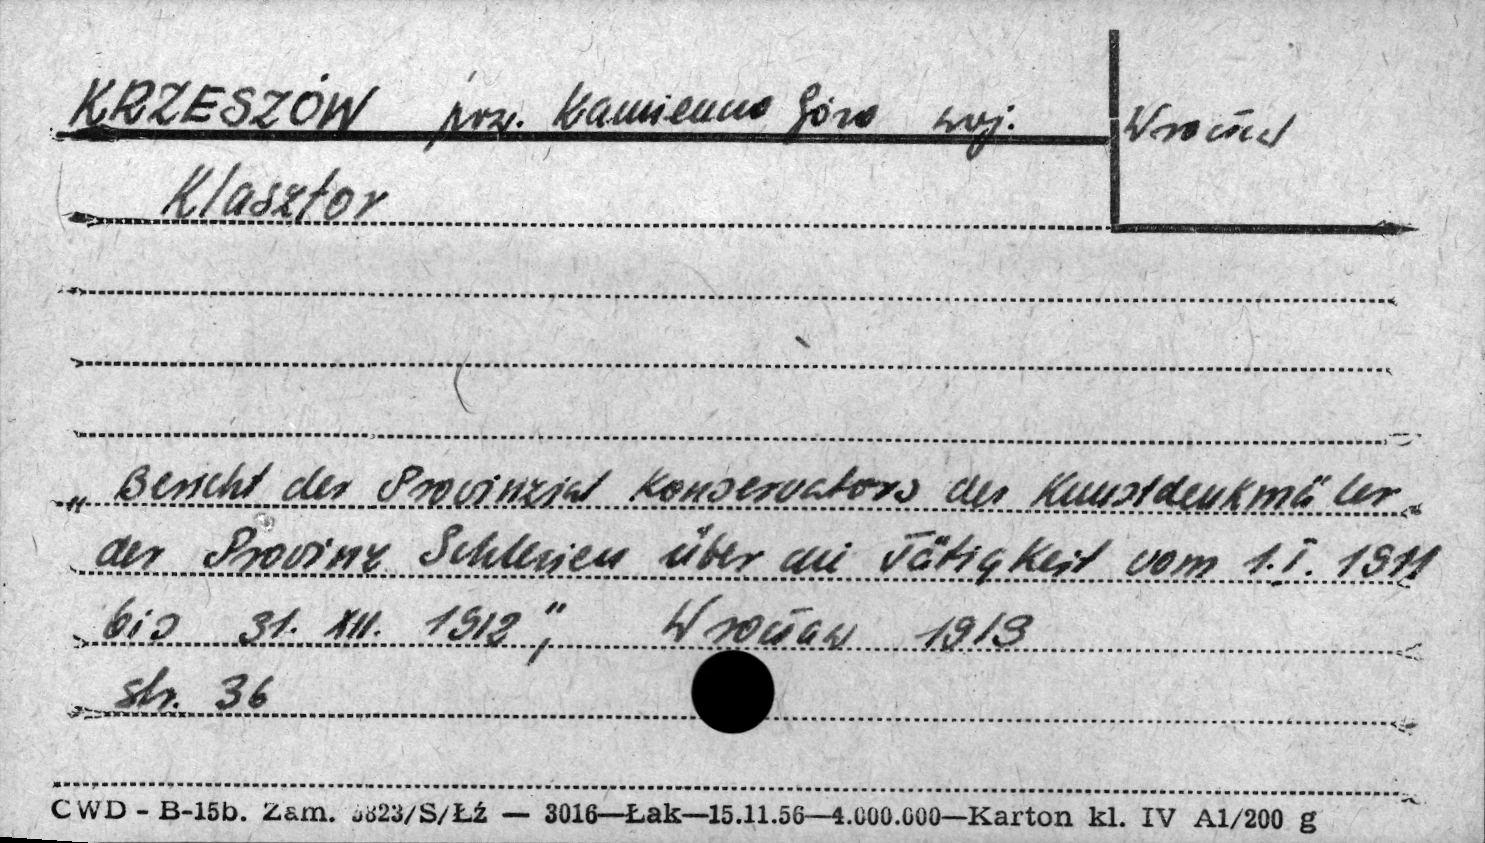 KRZESZÓW pow. Kamienna Góra woj. Wrocław
Klasztor
„Bericht des Provinzial Konservators der Kunstdenkmäler
der Provinz Schlesien über die Tätigkeit vom 1.I. 1911
bis 31. XII. 1912", Wrocław 1913
str. 36
CWD - B-15b. Zam. 5823/S/Łź — 3016—Łak—15.11.56—4.000.000—Karton kl. IV A1/200 g